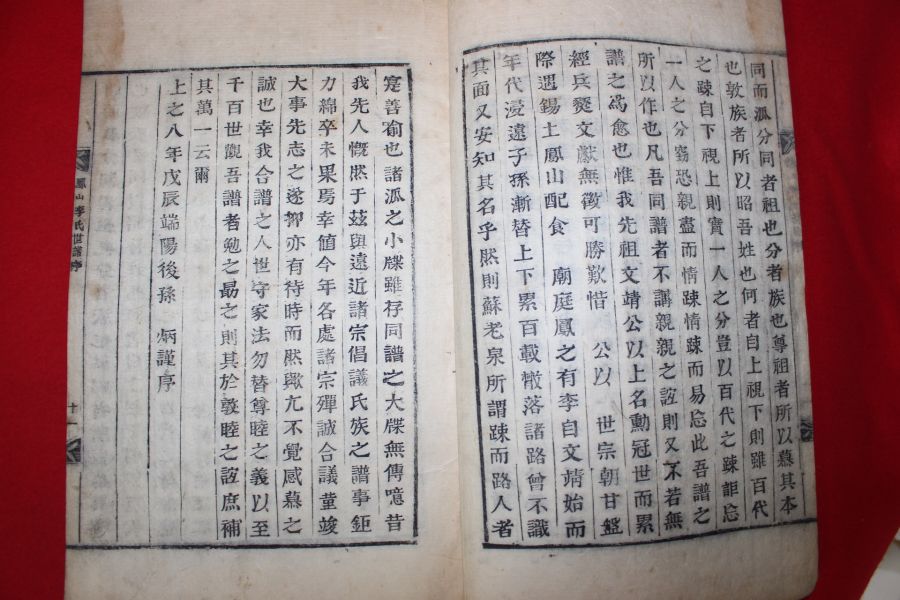 同而派分同者祖也分者族也尊祖者所以慕其本
也敦族者所以昭吾姓也何者自上視下則雖百代
之疎自下視上則實一人之分豈以百代之疎詎忘
一人之分竊恐親盡而情疎情疎而易忘此吾譜之
所以作也凡吾同譜者不講親親之誼則又不若無
譜之爲愈也惟我先祖文靖公以上名勳冠世而累
經兵燹文獻無徵可勝歎惜 公以 世宗朝甘盤
際遇錫土鳳山配食 廟庭鳳之有李自文靖始而
年代浸遠子孫漸替上下累百載散落諸路曾不識
其面又安知其名乎然則蘇老泉所謂疎而路人者
寔善喻也諸派之小牒雖存同譜之大牒無傳噫昔
我先人慨然于玆與遠近諸宗倡議氏族之譜事鉅
力綿卒未果焉幸値今年各處諸宗殫誠合議董竣
大事先志之遂抑亦有待時而然歟亢不覺感慕之
誠也幸我合譜之人世守家法勿替尊睦之義以至
千百世觀吾譜者勉之勗之則其於敦睦之誼庶補
其萬一云爾
上之八年戊辰端陽後孫 炳謹序
鳳山李氏世譜序
十一